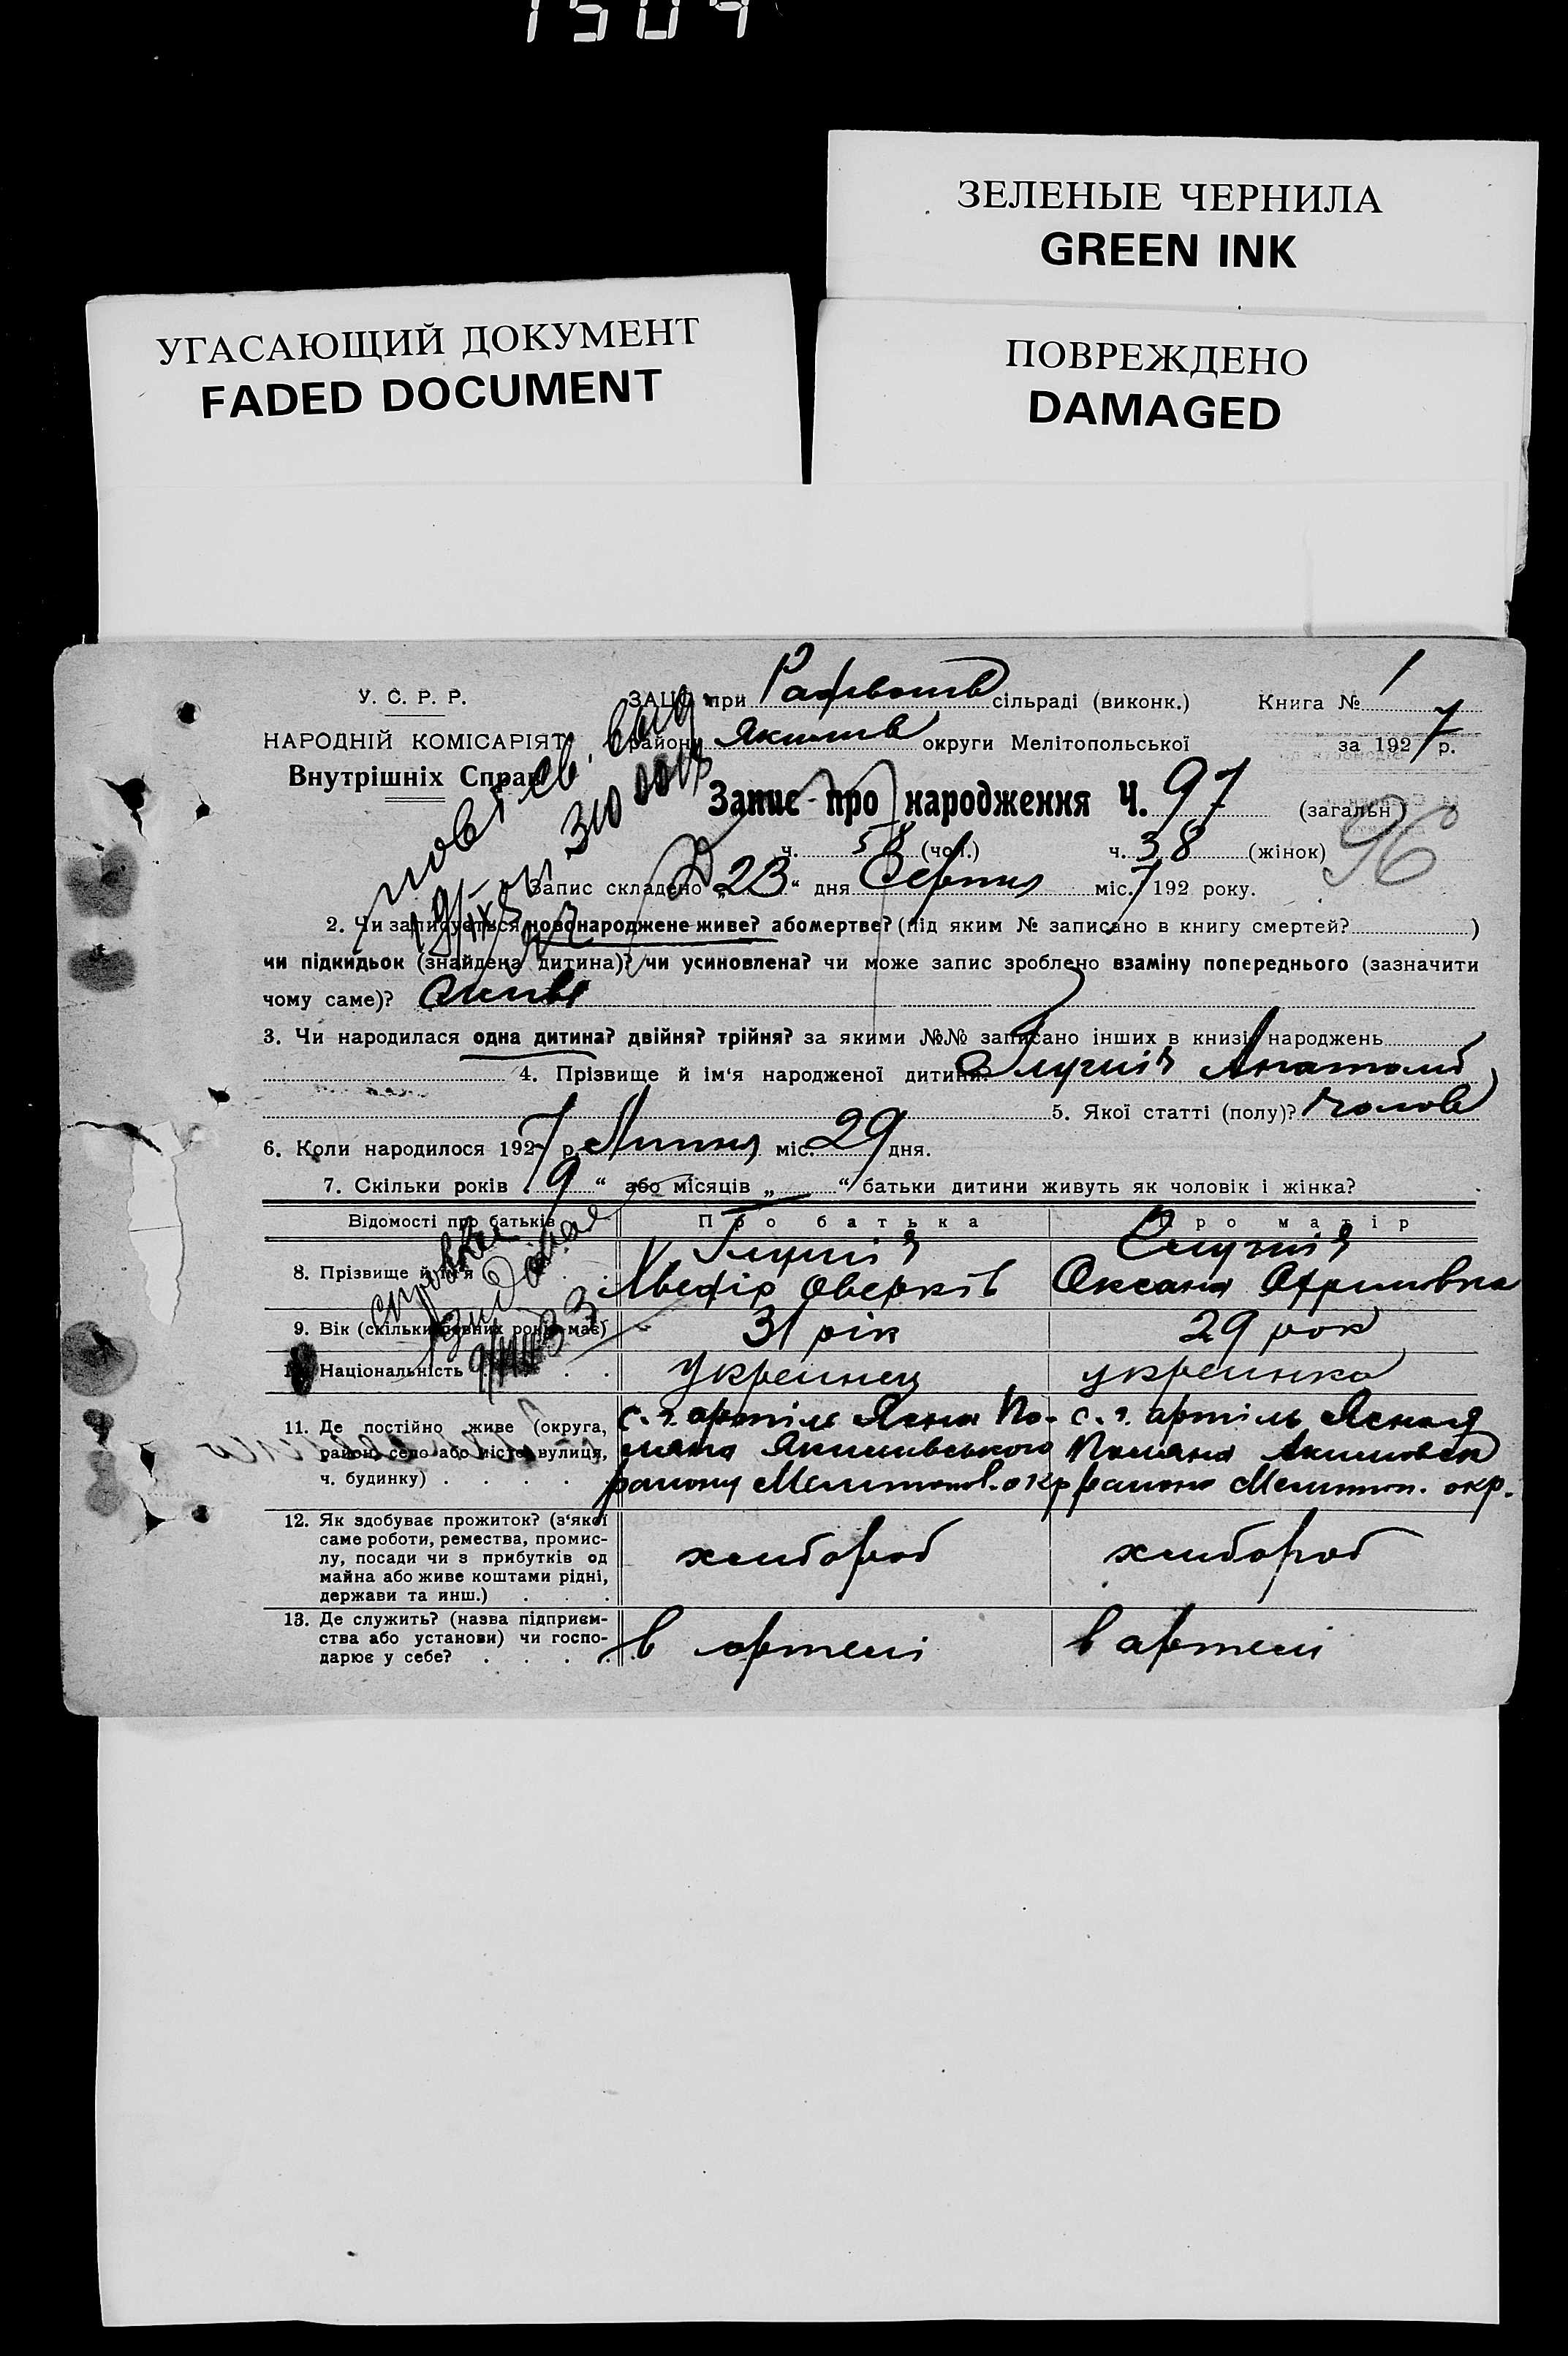 1504
ЗЕЛЕНЫЕ ЧЕРНИЛА
GREEN INK
УГАСАЮЩИЙ ДОКУМЕНТ
FADED DOCUMENT
ПОВРЕЖДЕНО
DAMAGED
У. С. Р. Р.
ЗАЦС при сільраді (виконк.) Книга № 1
НАРОДНІЙ КОМІСАРІЯТ
району Якимів округи Мелітопольської за 1927 р.
Внутрішніх Справ
Запис про народження Ч. 97 (загальн)
ч. 58 (чол.) ч. 38 (жінок) 96
Запис складено „23“ дня Серпня міс. 7 192 року.
2. Чи записується новонароджене живе? або мертве? (під яким № записано в книгу смертей? )
чи підкидьок (знайдена дитина)? чи усиновлена? чи може запис зроблено взаміну попереднього (зазначити
чому саме)? живе
3. Чи народилася одна дитина? двійня? трійня? за якими №№ записано інших в книзі народжень
4. Прізвище й ім‘я народженої дитини: Анатолій
5. Якої статті (полу)? чолов
6. Коли народилося 1927 р. Липня міс. 29 дня.
7. Скільки років „9“ або місяців „ — “ батьки дитини живуть як чоловік і жінка?
Відомості про батьків Про батька Про матір
8. Прізвище й ім‘я
Оверків Оксана
9. Вік (скільки повних років має) 31 рік 29 рок
10. Національність украинец украинка
11. Де постійно живе (округа, район, село або місто, вулиця, ч. будинку)
с. г. артіль Ясна По- с. г. артіль Ясная
ляна Якимивського Поляна Акимовск
району Мелитопол. окр району Мелитоп. окр.
12. Як здобуває прожиток? (з‘якої
саме роботи, ремества, промис-
лу, посади чи з прибутків од
майна або живе коштами рідні,
держави та инш.)
хлибороб хлибороб
13. Де служить? (назва підприєм-
ства або установи) чи госпо-
дарює у себе?
в артели в артели